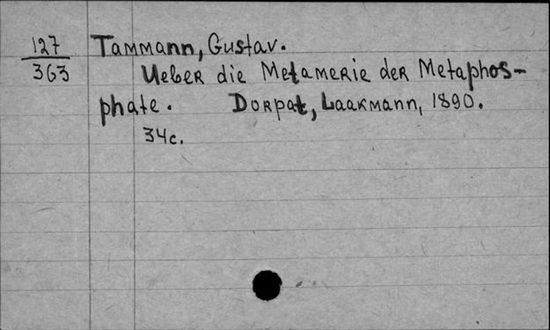 127 Tammann, Gustav.
363 Ueber die Metamerie der Metaphos-
phate. Dorpat, Laakmann, 1890.
34c.